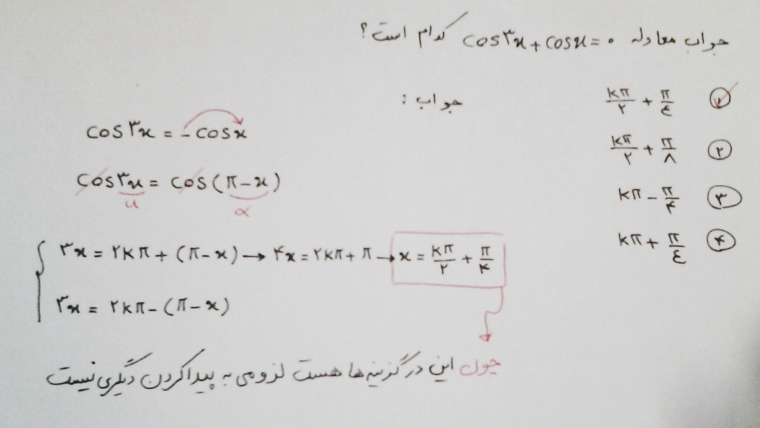 جواب معادله cos۳x + cosx = ۰ کدام است؟
۱) kπ/۲ + π/٤
۲) kπ/۲ + π/۸
۳) kπ − π/۴
۴) kπ + π/٤
جواب :
cos۳x = −cosx
cos۳x = cos(π−x)
u α
۳x = ۲kπ + (π−x) → ۴x = ۲kπ + π → x = kπ/۲ + π/۴
۳x = ۲kπ − (π−x)
چون این در گزینه ها هست لزومی به پیدا کردن دیگری نیست